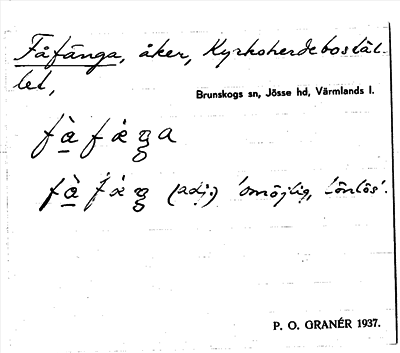 Fåfänga, åker, Kyrkoherdebostäl-
let,
Brunskogs sn, Jösse hd, Värmlands l.
(adj.) 'omöjlig, lönlös'.
P. O. GRANÉR 1937.